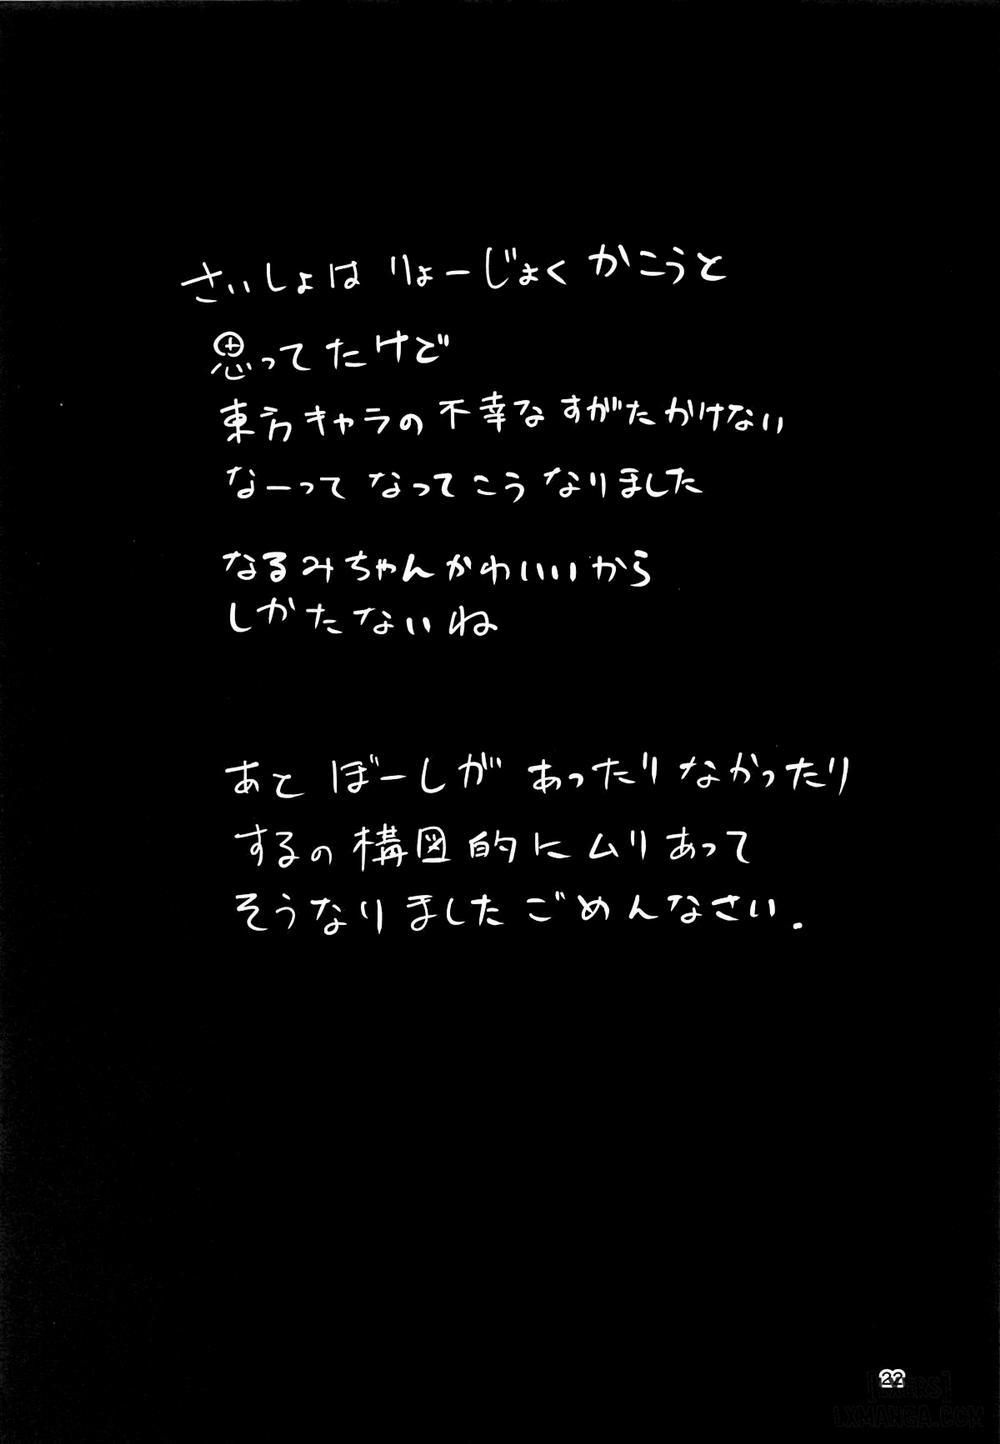 さいしょは りょーじょく かこうと
思ってたけど
東方キャラの不幸なすがたかけない
なーって なってこうなりました
なるみちゃんかわいいから
しかたないね
あと ぼーしが あったりなかったり
するの構図的にムリあって
そうなりましたごめんなさい.
22
LXMANGA.COM